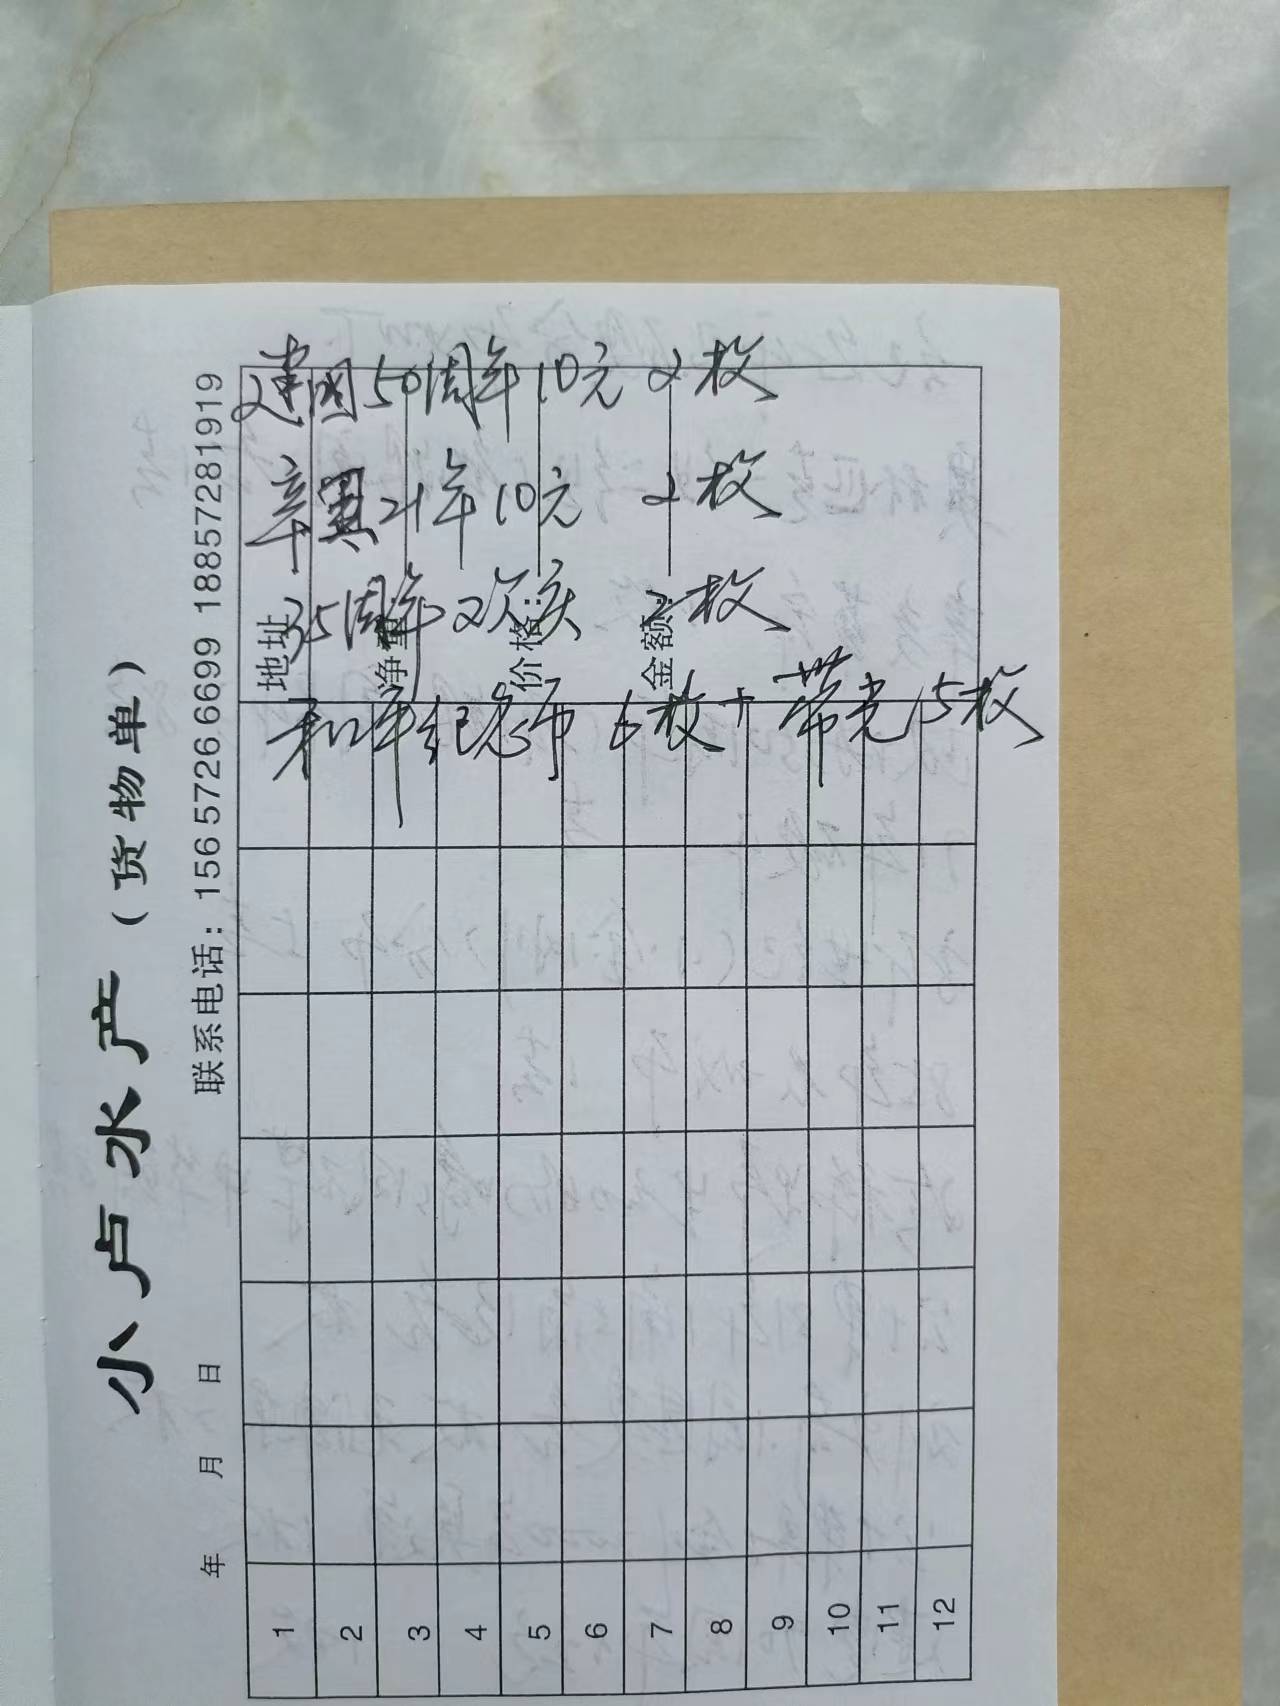 建国50周年10元 2枚
辛 21年10元 2枚
35周年 欢庆 2枚
和平纪念币 6枚+带光15枚
小卢水产（货物单）
联系电话：15657266699 18857281919
年 月 日
地址
净重：
价格：
金额：
1
2
3
4
5
6
7
8
9
10
11
12